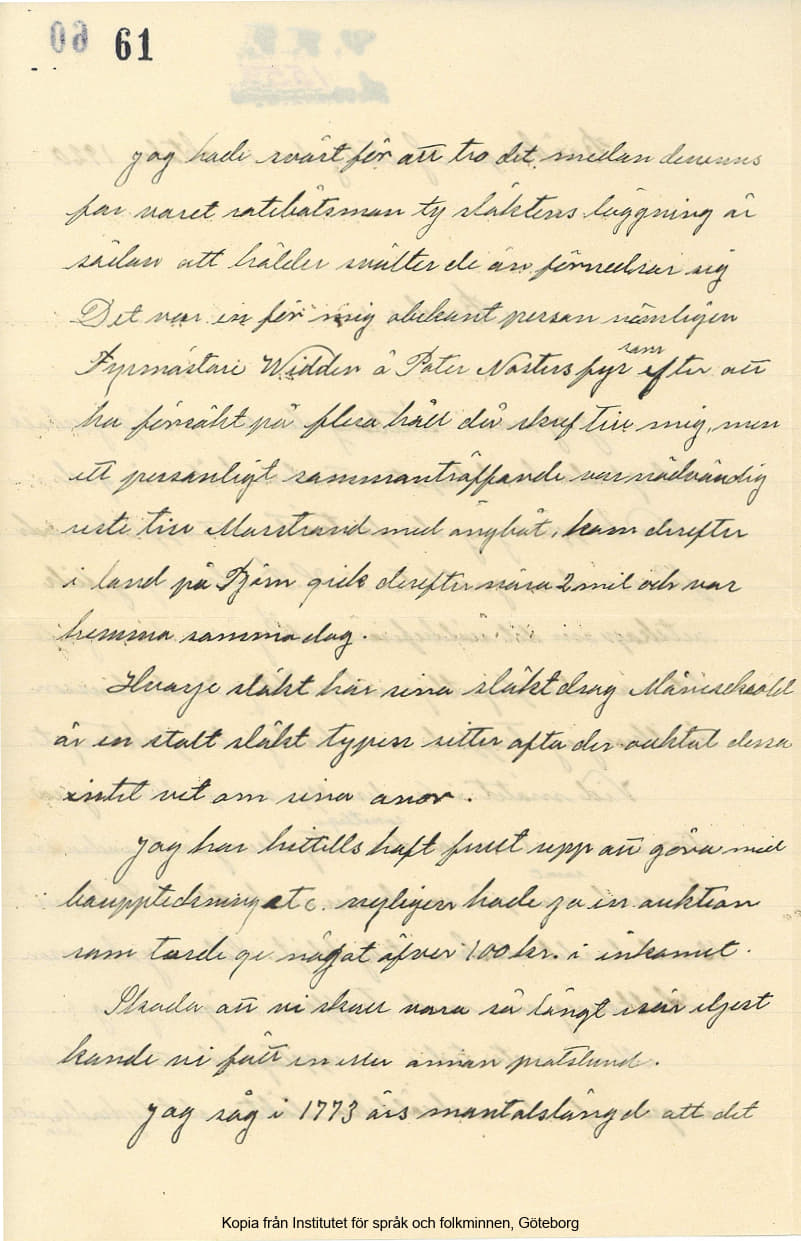 61
jag hade svårt för att tro det, medan dennes
far varet rotebåtsman ty släktens läggning är
sådan att hälder svälter de än förnedrar sig
Det var en för mig obekant person nämligen
Fyrmästare Widden å Pater Nosters fyr som efter att
ha försökt på flera håll då skref till mig, men
ett personligt sammanträffande var nödvändig
reste till Marstrand med ångbåt, kom derefter
i land på Tjörn gick derefter nära 2 mil och var
hemma samma dag.
Hvarje släkt har sina släktdrag Måneskiöld
är en stolt släkt typen sitter ofta der oaktat dessa
intet vet om sina anor.
Jag har hittills haft fullt upp att göra med
bouppteckning etc. nyligen hade ja en auktion
som torde ge något öfver 100 kr. i inkomst.
Skada att vi skall vara så långt isär eljest
kunde vi fått en eller annan pratstund.
Jag såg i 1773 års mantalslängd att det
Kopia från Institutet för språk och folkminnen, Göteborg